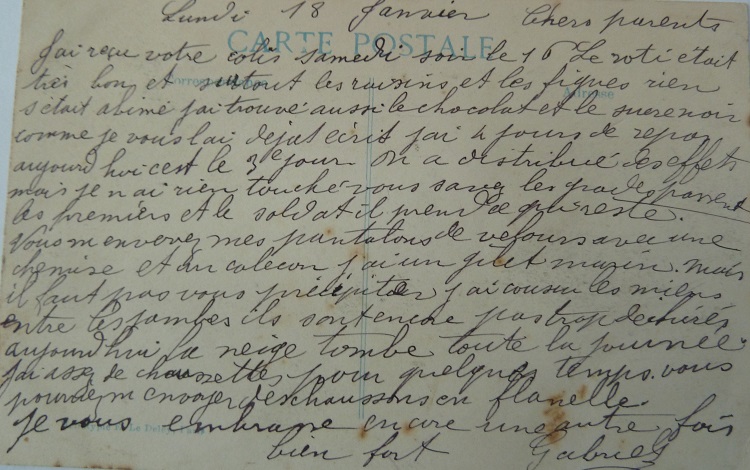 Lundi 18 Janvier Chers parents
CARTE POSTALE
J'ai reçu votre colis samedi soir le 16 Le roti était
très bon et surtout les raisins et les figues rien
Correspondance
Adresse
s'etait abimé j'ai trouvé aussi le chocolat et le sucre noir
comme je vous lai deja ecrit j'ai 4 jours de repos
aujourd hui c'est le 3e jour On a distribué des effets
mais je n ai rien touché vous savez les grades passent
les premiers et le soldat il prend ce qui reste.
Vous m enverez mes pantalons de velours avec une
chemise et un calecon j'ai un gilet mazin. mais
il faut pas vous précipiter j'ai cousu les miens
entre les jambes ils sont encore pas trop dechirés
aujourd hui la neige tombe toute la journée
J'ai assez de chaussettes pour quelques temps. vous
pourrez m envoyer des chaussons en flanelle.
Je vous embrasse encore une autre fois
bien fort Gabriel